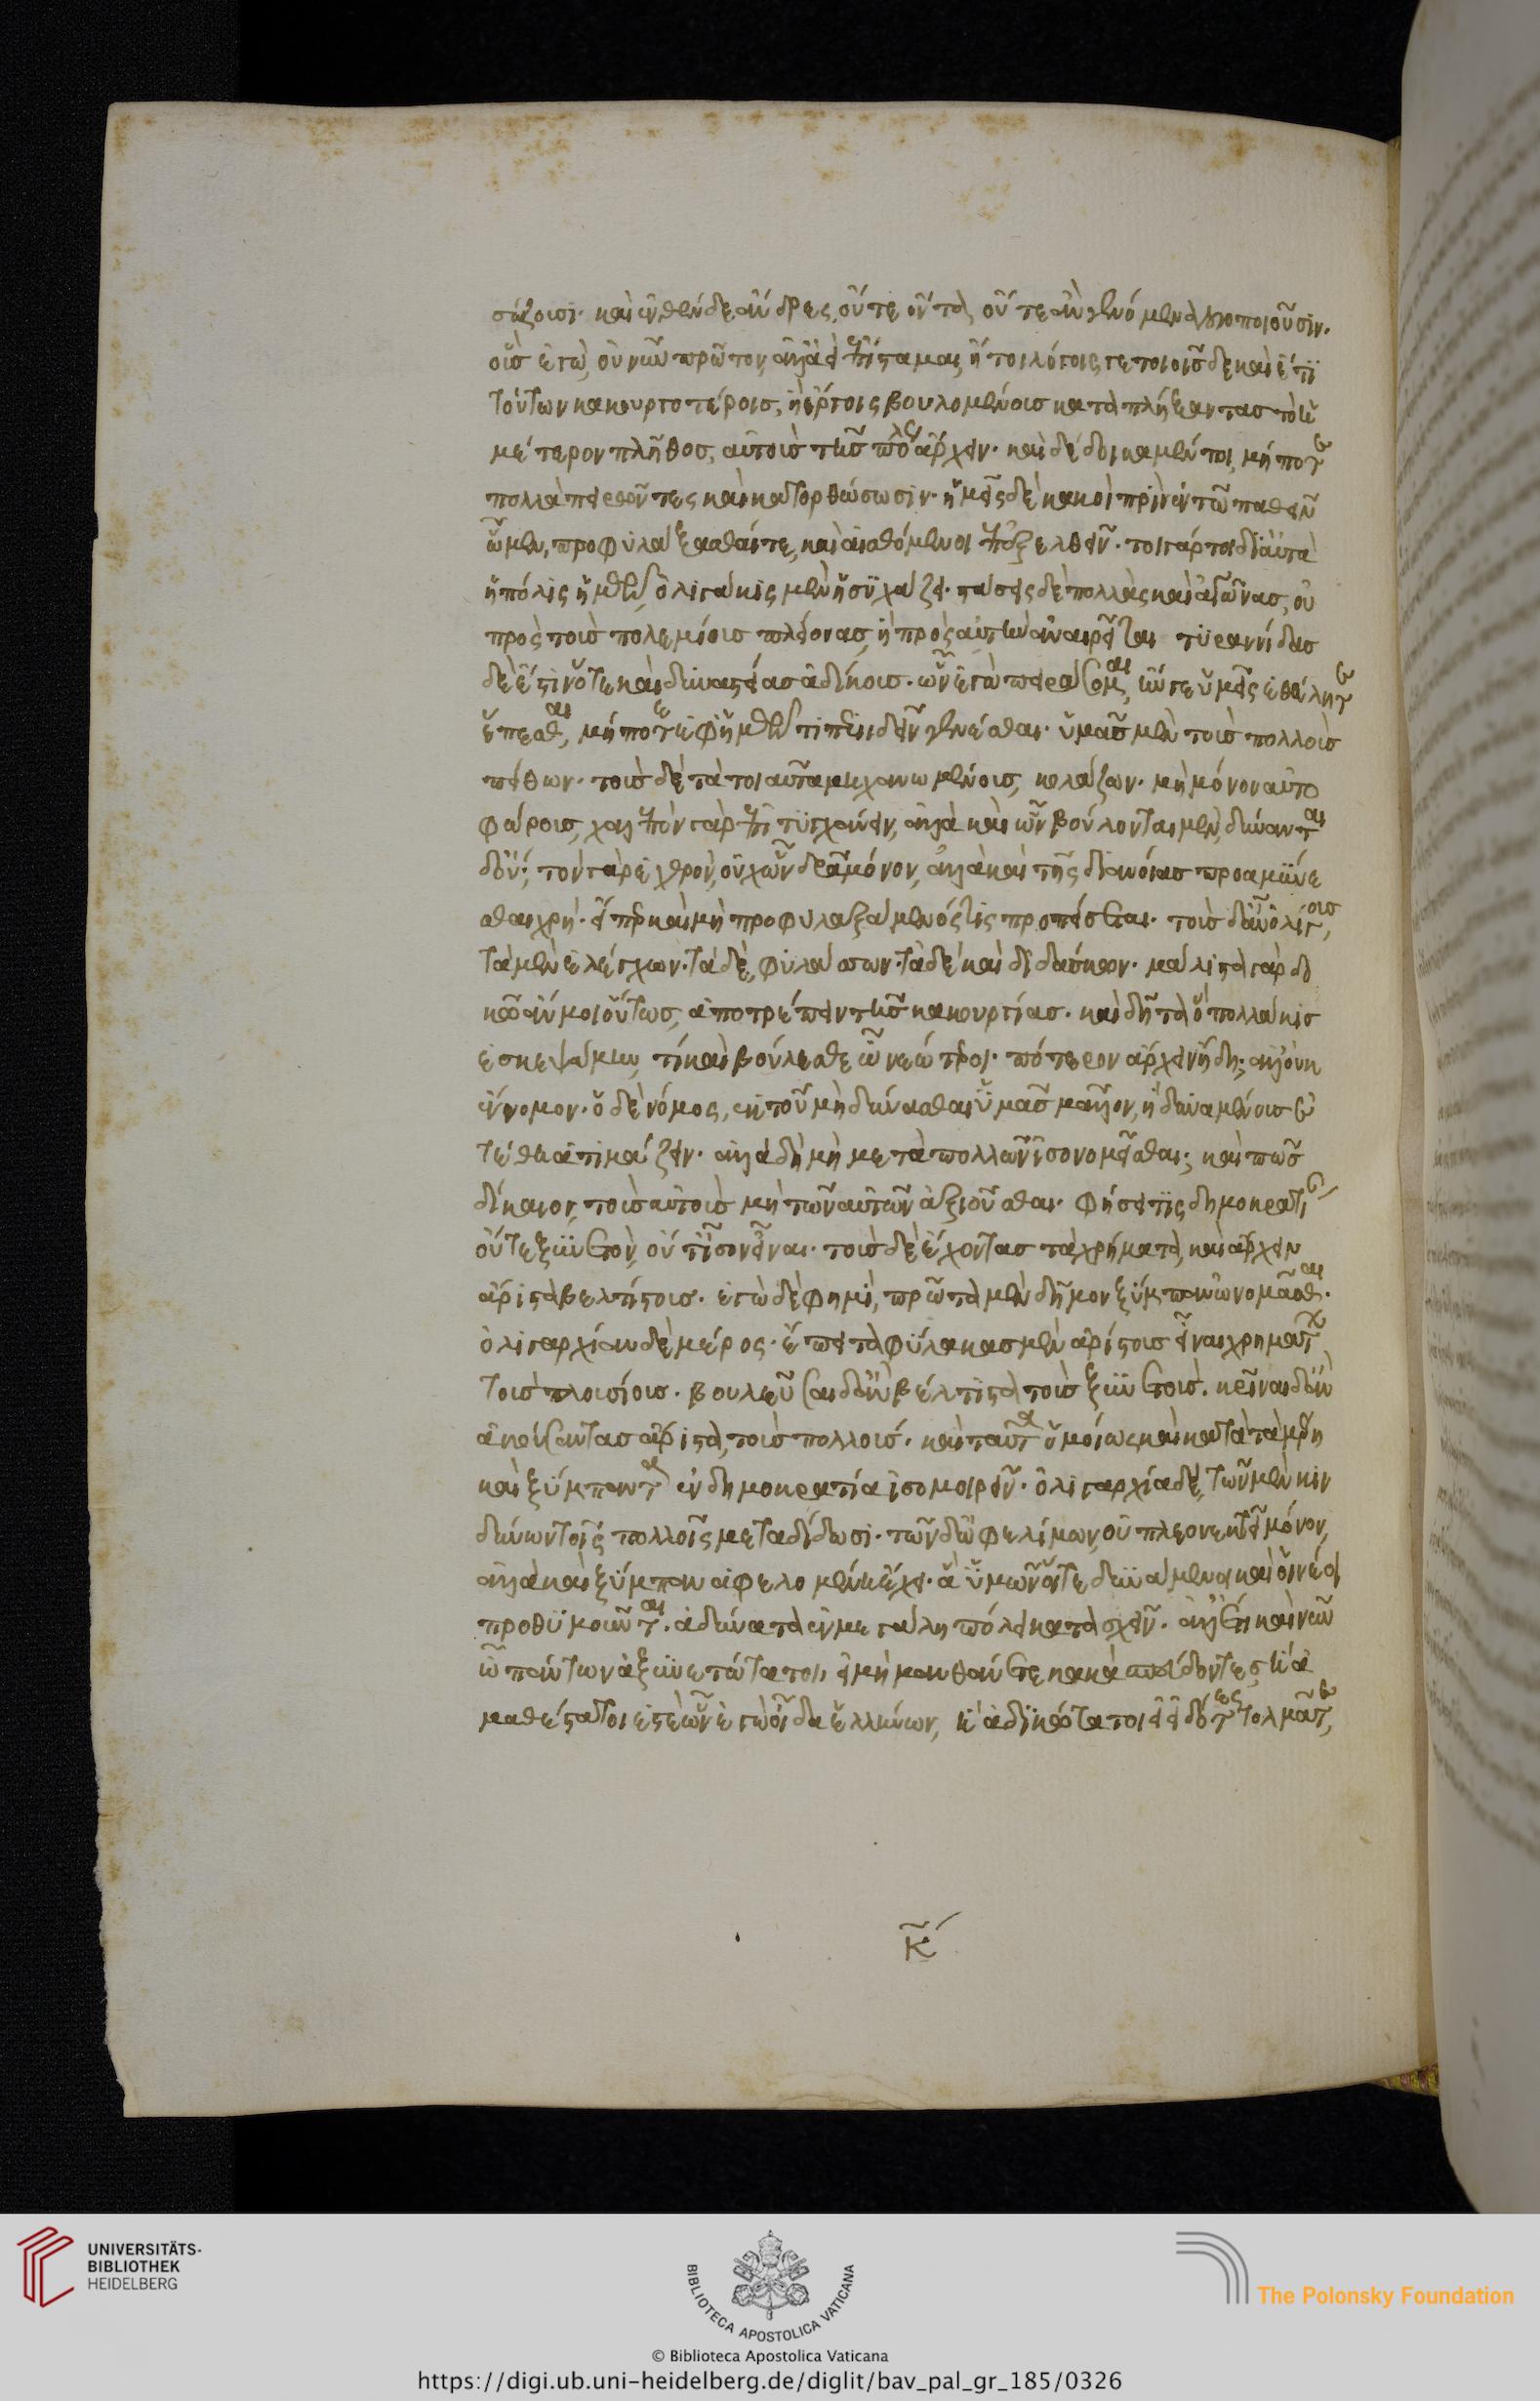 σώζουσι· καὶ ἐνθένδε ἄνδρες, οὔτε ὄντα, οὔτε ἂν γενόμενα λογοποιοῦσιν.
οὓς ἐγὼ, οὐ νῦν πρῶτον, ἀλλὰ ἀεὶ ἐπίσταμαι, ἤτοι λόγοις γε τοιοῖσδε καὶ ἔτι
τούτων κακουργοτέροις, ἢ ἔργοις βουλομένους καταπλήξαντας τὸ ὑ
μέτερον πλῆθος, αὐτοὺς τῆς πόλεως ἄρχειν· καὶ δέδοικα μέντοι, μή ποτε
πολλὰ πειρῶντες καὶ κατορθώσωσιν· ἡμεῖς δὲ κακοὶ πρὶν ἐν τῷ παθεῖν
ὦμεν, προφυλάξασθαί τε, καὶ αἰσθόμενοι ἐπεξελθεῖν· τοιγάρτοι δι' αὐτὰ
ἡ πόλις ἡμῶν ὀλιγάκις μὲν ἡσυχάζει· στάσεις δὲ πολλὰς καὶ ἀγῶνας, οὐ
πρὸς τοὺς πολεμίους πλέονας, ἢ πρὸς αὑτὴν ἀναιρεῖται τυραννίδας
δὲ ἔστιν ὅτε καὶ δυναστείας ἀδίκους· ὧν ἐγὼ πειράσομαι, ἤν γε ὑμεῖς ἐθέλητε
ἕπεσθαι, μή ποτε ἐφ' ἡμῶν τι περιιδεῖν γενέσθαι· ὑμᾶς μὲν τοὺς πολλοὺς
πείθων· τοὺς δὲ τὰ τοιαῦτα μηχανωμένους, κολάζων· μὴ μόνον αὐτο
φώρους, χαλεπὸν γὰρ ἐπιτυγχάνειν, ἀλλὰ καὶ ὧν βούλονται μὲν, δύνανται
δ' οὔ· τὸν γὰρ ἐχθρὸν, οὐχ ὧν δρᾷ μόνον, ἀλλὰ καὶ τῆς διανοίας προαμύνε
σθαι χρή· εἴπερ καὶ μὴ προφυλαξάμενός τις προπείσεται· τοὺς δ' αὖ ὀλίγους,
τὰ μὲν ἐλέγχων· τὰ δὲ, φυλάσσων· τὰ δὲ καὶ διδάσκων· μάλιστα γὰρ δο
κῶ ἄν μοι οὕτως, ἀποτρέπειν τῆς κακουργίας· καὶ δῆτα ὃ πολλάκις
ἐσκεψάμην, τί καὶ βούλεσθε ὦ νεώτεροι· πότερον ἄρχειν ἤδη; ἀλλ' οὐκ
ἔννομον· ὁ δὲ νόμος, ἐκ τοῦ μὴ δύνασθαι ὑμᾶς μᾶλλον, ἢ δυναμένους ἐ
τέθη ἀτιμάζειν· ἀλλὰ δὴ μὴ μετὰ πολλῶν ἰσονομεῖσθαι; καὶ πῶς
δίκαιον, τοὺς αὐτοὺς μὴ τῶν αὐτῶν ἀξιοῦσθαι· φήσει τις δημοκρατί
οὔτε ξυνετὸν, οὔτ' ἴσον εἶναι· τοὺς δὲ ἔχοντας τὰ χρήματα, καὶ ἄρχειν
ἄριστα βελτίστους· ἐγὼ δέ φημι, πρῶτα μὲν δῆμον ξύμπαν ὠνομᾶσθαι·
ὀλιγαρχίαν δὲ μέρος· ἔπειτα φύλακας μὲν ἀρίστους εἶναι χρημάτων
τοὺς πλουσίους· βουλεῦσαι δ' ἂν βέλτιστα τοὺς ξυνετούς· κρῖναι δ' ἂν
ἀκούσαντας ἄριστα, τοὺς πολλούς· καὶ ταῦτα ὁμοίως καὶ κατὰ τὰ μέρη
καὶ ξύμπαντα ἐν δημοκρατίᾳ ἰσομοιρεῖν· ὀλιγαρχία δὲ, τῶν μὲν κιν
δύνων τοῖς πολλοῖς μεταδίδωσι· τῶν δ' ὠφελίμων, οὐ πλεονεκτεῖ μόνον,
ἀλλὰ καὶ ξύμπαν ἀφελομένη ἔχει· ἃ ὑμῶν οἵ τε δυνάμενοι καὶ οἱ νέοι
προθυμοῦνται· ἀδύνατα ἐν μεγάλῃ πόλει κατασχεῖν· ἀλλ' ἔτι καὶ νῦν
ὦ πάντων ἀξυνετώτατοι, εἰ μὴ μανθάνετε κακὰ σπεύδοντες, ἢ ἀ
μαθέστατοί ἐστε ὧν ἐγὼ οἶδα ἑλλήνων, ἢ ἀδικώτατοι εἰ εἰδότες τολμᾶτε,
κ
UNIVERSITÄTS-
BIBLIOTHEK
HEIDELBERG
BIBLIOTECA APOSTOLICA VATICANA
The Polonsky Foundation
© Biblioteca Apostolica Vaticana
https://digi.ub.uni-heidelberg.de/diglit/bav_pal_gr_185/0326